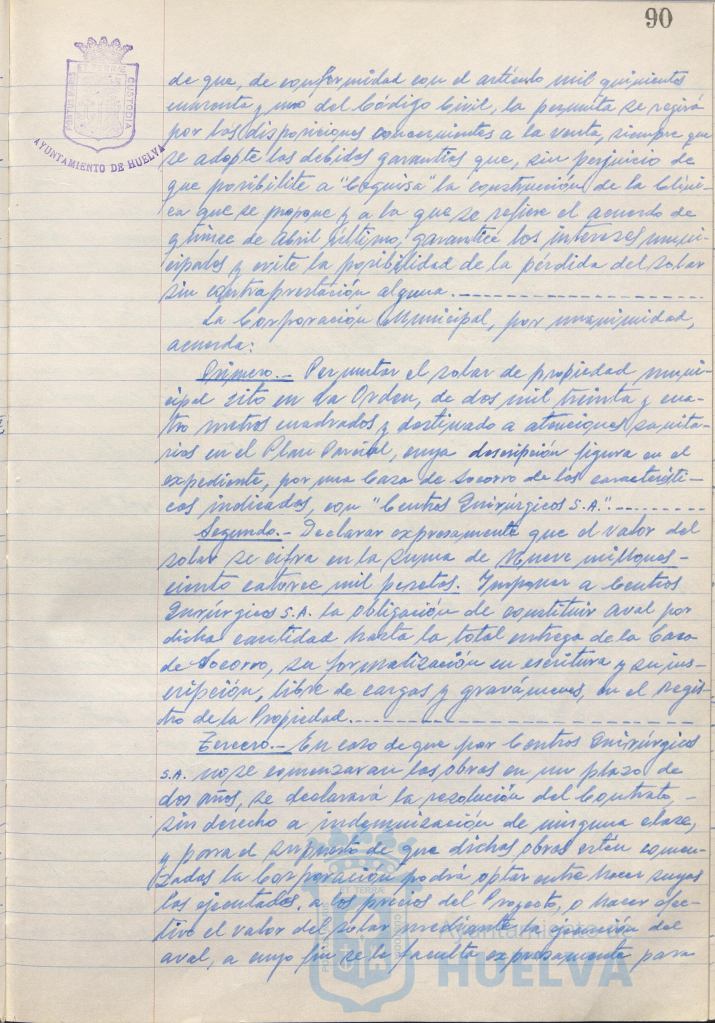 90
PORTUS MARIS ET TERRÆ CUSTODIA
AYUNTAMIENTO DE HUELVA
de que, de conformidad con el artículo mil quinientos
cuarenta y uno del Código Civil, la permuta se regirá
por las disposiciones concernientes a la venta, siempre que
se adopte las debidas garantías que, sin perjuicio de
que posibilite a "Cequisa" la construcción de la Clíni-
ca que se propone y a la que se refiere el acuerdo de
quince de Abril último, garantice los intereses muni-
cipales y evite la posibilidad de la pérdida del solar
sin contraprestación alguna.
La Corporación Municipal, por unanimidad,
acuerda:
Primero.- Permutar el solar de propiedad muni-
cipal sito en La Orden, de dos mil treinta y cua-
tro metros cuadrados y destinado a atenciones sanita-
rias en el Plan Parcial, cuya descripción figura en el
expediente, por una Casa de Socorro de las característi-
cas indicadas, con "Centros Quirúrgicos S.A."
Segundo.- Declarar expresamente que el valor del
solar se cifra en la suma de Nueve millones
ciento catorce mil pesetas. Imponer a Centros
Quirúrgicos S.A. la obligación de constituir aval por
dicha cantidad hasta la total entrega de la Casa
de Socorro, su formalización en escritura y su ins-
cripción, libre de cargas y gravámenes, en el Regis-
tro de la Propiedad.
Tercero.- En caso de que por Centros Quirúrgicos
S.A. no se comenzaran las obras en un plazo de
dos años, se declarará la resolución del Contrato,
sin derecho a indemnización de ninguna clase,
y para el supuesto de que dichas obras estén comen-
zadas la Corporación podrá optar entre hacer suyas
las ejecutadas, a los precios del Proyecto, o hacer efec-
tivo el valor del solar mediante la ejecución del
aval, a cuyo fin se le faculta expresamente para
HUELVA